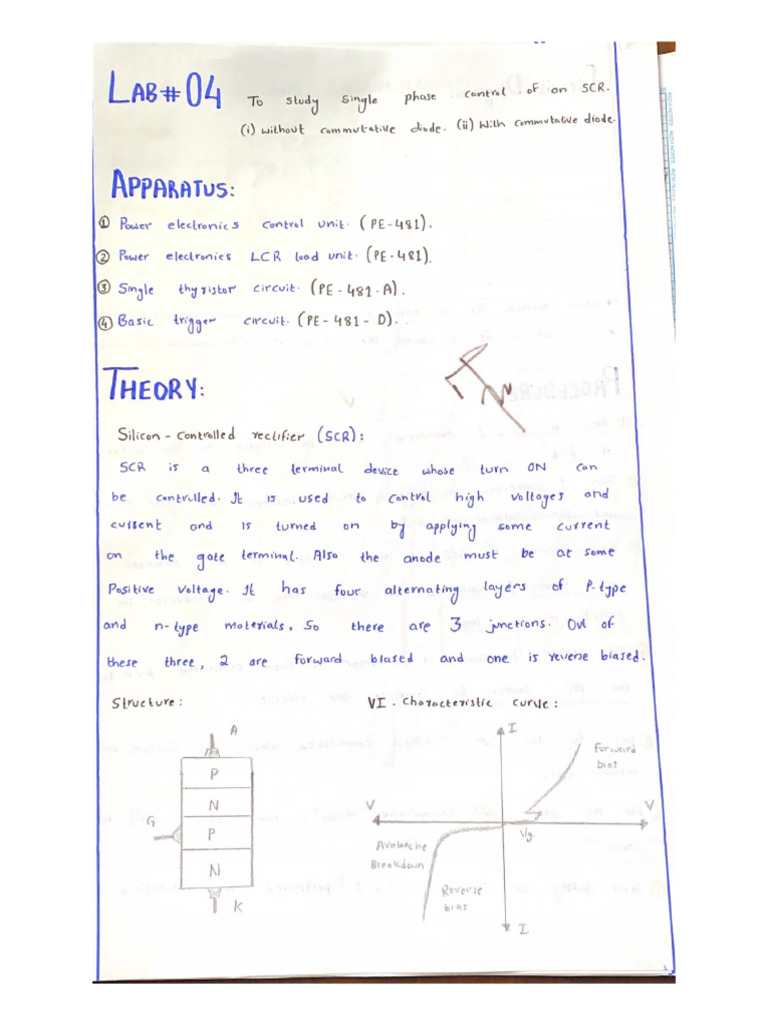 LAB# 04 To study single phase control of on SCR.
(i) without commutative diode. (ii) With commutative diode.
APPARATUS:
① Power electronics control unit. (PE-481).
② Power electronics LCR load unit. (PE-481).
③ Single thyristor circuit. (PE-481-A).
④ Basic trigger circuit. (PE-481-D).
THEORY:
Silicon-Controlled rectifier (SCR):
SCR is a three terminal device whose turn ON can
be controlled. It is used to control high voltages and
current and is turned on by applying some current
on the gate terminal. Also the anode must be at some
Positive voltage. It has four alternating layers of P-type
and n-type materials, So there are 3 junctions. Out of
these three, 2 are forward biased and one is reverse biased.
Structure: VI-Characteristic curve:
A
P
N
G
P
N
K
I
Forward
bias
V
V
Vg.
Avalanche
Breakdown
Reverse
bias
I